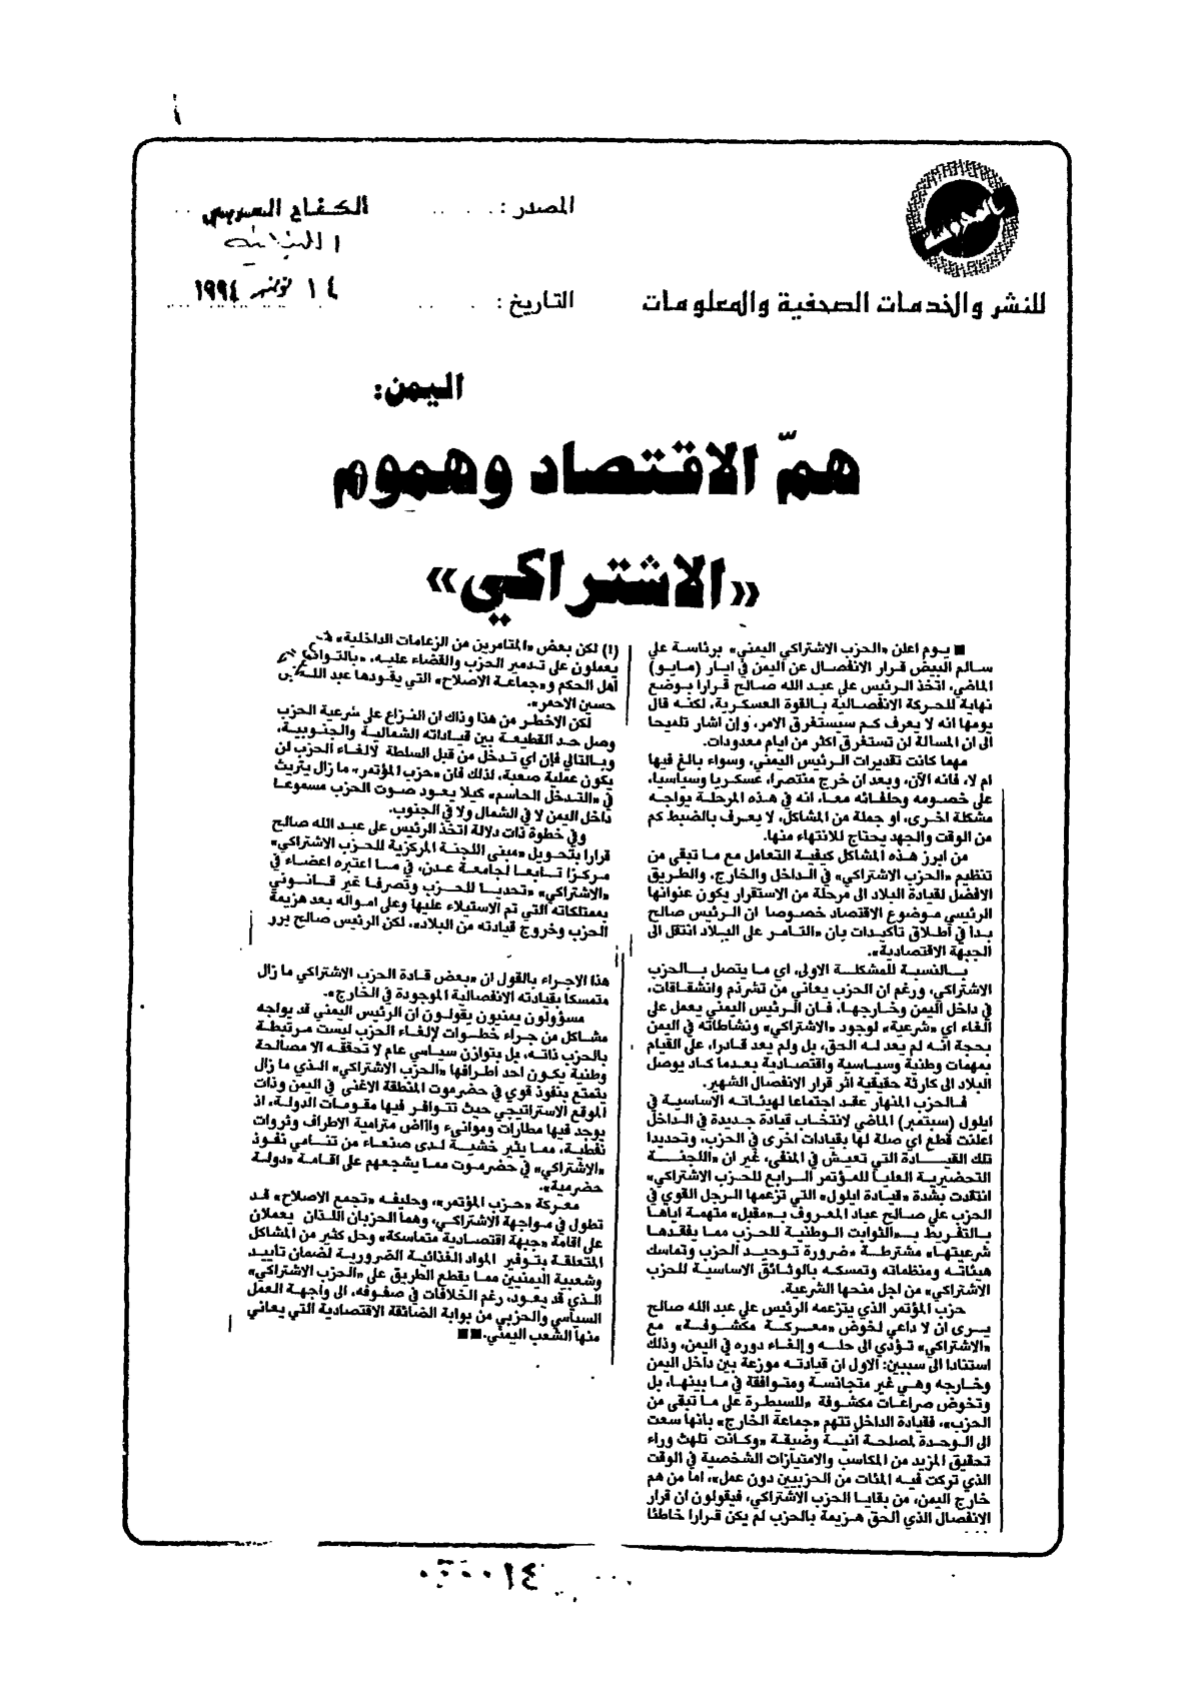 المصدر : الكفاح العربي
التاريخ : ١٤ نوفمبر ١٩٩٤
للنشر والخدمات الصحفية والمعلومات
اليمن:
همّ الاقتصاد وهموم
«الاشتراكي»
■ يوم اعلن «الحزب الاشتراكي اليمني» برئاسة علي
سالم البيض قرار الانفصال عن اليمن في ايار (مايو)
الماضي، اتخذ الرئيس علي عبد الله صالح قرارا بوضع
نهاية للحركة الانفصالية بالقوة العسكرية، لكنه قال
يومها انه لا يعرف كم سيستغرق الامر، وإن اشار تلميحا
الى ان المسالة لن تستغرق اكثر من ايام معدودات.
مهما كانت تقديرات الرئيس اليمني، وسواء بالغ فيها
ام لا، فانه الآن، وبعد ان خرج منتصرا، عسكريا وسياسيا،
على خصومه وحلفائه معا، انه في هذه المرحلة يواجه
مشكلة اخرى، او جملة من المشاكل، لا يعرف بالضبط كم
من الوقت والجهد يحتاج للانتهاء منها.
من ابرز هذه المشاكل كيفية التعامل مع ما تبقى من
تنظيم «الحزب الاشتراكي» في الداخل والخارج، والطريق
الافضل لقيادة البلاد الى مرحلة من الاستقرار يكون عنوانها
الرئيسي موضوع الاقتصاد خصوصا ان الرئيس صالح
بدا في اطلاق تاكيدات بان «التامر على البلاد انتقل الى
الجبهة الاقتصادية».
بالنسبة للمشكلة الاولى، اي ما يتصل بالحزب
الاشتراكي، ورغم ان الحزب يعاني من تشرذم وانشقاقات،
في داخل اليمن وخارجها، فان الرئيس اليمني يعمل على
الغاء اي «شرعية» لوجود «الاشتراكي» ونشاطاته في اليمن
بحجة انه لم يعد له الحق، بل ولم يعد قادرا، على القيام
بمهمات وطنية وسياسية واقتصادية بعدما كاد يوصل
البلاد الى كارثة حقيقية اثر قرار الانفصال الشهير.
فالحزب المنهار عقد اجتماعا لهيئاته الاساسية في
ايلول (سبتمبر) الماضي لانتخاب قيادة جديدة في الداخل
اعلنت قطع اي صلة لها بقيادات اخرى في الحزب، وتحديدا
تلك القيادة التي تعيش في المنفى، غير ان «اللجنة
التحضيرية العليا للمؤتمر الرابع للحزب الاشتراكي»
انتقدت بشدة «قيادة ايلول» التي تزعمها الرجل القوي في
الحزب علي صالح عباد المعروف بـ«مقبل» متهمة اياها
بالتفريط بـ«الثوابت الوطنية للحزب مما يفقدها
شرعيتها» مشترطة «ضرورة توحيد الحزب وتماسك
هيئاته ومنظماته وتمسكه بالوثائق الاساسية للحزب
الاشتراكي» من اجل منحها الشرعية.
حزب المؤتمر الذي يتزعمه الرئيس علي عبد الله صالح
يرى ان لا داعي لخوض «معركة مكشوفة» مع
«الاشتراكي» تؤدي الى حله وإلغاء دوره في اليمن، وذلك
استنادا الى سببين: الاول ان قيادته موزعة بين داخل اليمن
وخارجه وهي غير متجانسة ومتوافقة في ما بينها، بل
وتخوض صراعات مكشوفة «للسيطرة على ما تبقى من
الحزب»، فقيادة الداخل تتهم «جماعة الخارج» بانها سعت
الى الوحدة لمصلحة آنية وضيقة «وكانت تلهث وراء
تحقيق المزيد من المكاسب والامتيازات الشخصية في الوقت
الذي تركت فيه المئات من الحزبيين دون عمل»، اما من هم
خارج اليمن، من بقايا الحزب الاشتراكي، فيقولون ان قرار
الانفصال الذي الحق هزيمة بالحزب لم يكن قرارا خاطئا
(!) لكن بعض «المتامرين من الزعامات الداخلية»
يعملون على تدمير الحزب والقضاء عليه، «بالتواطؤ مع
اهل الحكم و«جماعة الاصلاح» التي يقودها عبد الله بن
حسين الاحمر».
لكن الاخطر من هذا وذاك ان النزاع على شرعية الحزب
وصل حد القطيعة بين قياداته الشمالية والجنوبية،
وبالتالي فإن اي تدخل من قبل السلطة لالغاء الحزب لن
يكون عملية صعبة، لذلك فان «حزب المؤتمر» ما زال يتريث
في «التدخل الحاسم» كيلا يعود صوت الحزب مسموعا
داخل اليمن لا في الشمال ولا في الجنوب.
وفي خطوة ذات دلالة اتخذ الرئيس علي عبد الله صالح
قرارا بتحويل «مبنى اللجنة المركزية للحزب الاشتراكي»
مركزا تابعا لجامعة عدن، في ما اعتبره اعضاء في
«الاشتراكي» «تحديا للحزب وتصرفا غير قانوني
بممتلكاته التي تم الاستيلاء عليها وعلى امواله بعد هزيمة
الحزب وخروج قيادته من البلاد»، لكن الرئيس صالح برر
هذا الاجراء بالقول ان «بعض قادة الحزب الاشتراكي ما زال
متمسكا بقيادته الانفصالية الموجودة في الخارج».
مسؤولون يمنيون يقولون ان الرئيس اليمني قد يواجه
مشاكل من جراء خطوات لإلغاء الحزب ليست مرتبطة
بالحزب ذاته، بل بتوازن سياسي عام لا تحققه الا مصالحة
وطنية يكون احد اطرافها «الحزب الاشتراكي» الذي ما زال
يتمتع بنفوذ قوي في حضرموت المنطقة الاغنى في اليمن وذات
الموقع الاستراتيجي حيث تتوافر فيها مقومات الدولة، اذ
يوجد فيها مطارات وموانىء واراض مترامية الاطراف وثروات
نفطية، مما يثير خشية لدى صنعاء من تنامي نفوذ
«الاشتراكي» في حضرموت مما يشجعهم على اقامة «دولة
حضرمية».
معركة «حزب المؤتمر»، وحليفه «تجمع الاصلاح» قد
تطول في مواجهة الاشتراكي، وهما الحزبان اللذان يعملان
على اقامة «جبهة اقتصادية متماسكة» وحل كثير من المشاكل
المتعلقة بتوفير المواد الغذائية الضرورية لضمان تأييد
وشعبية اليمنيين مما يقطع الطريق على «الحزب الاشتراكي»
الذي قد يعود، رغم الخلافات في صفوفه، الى واجهة العمل
السياسي والحزبي من بوابة الضائقة الاقتصادية التي يعاني
منها الشعب اليمني.■■